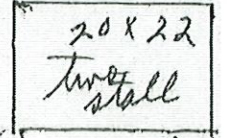 20 x 22
two
stall